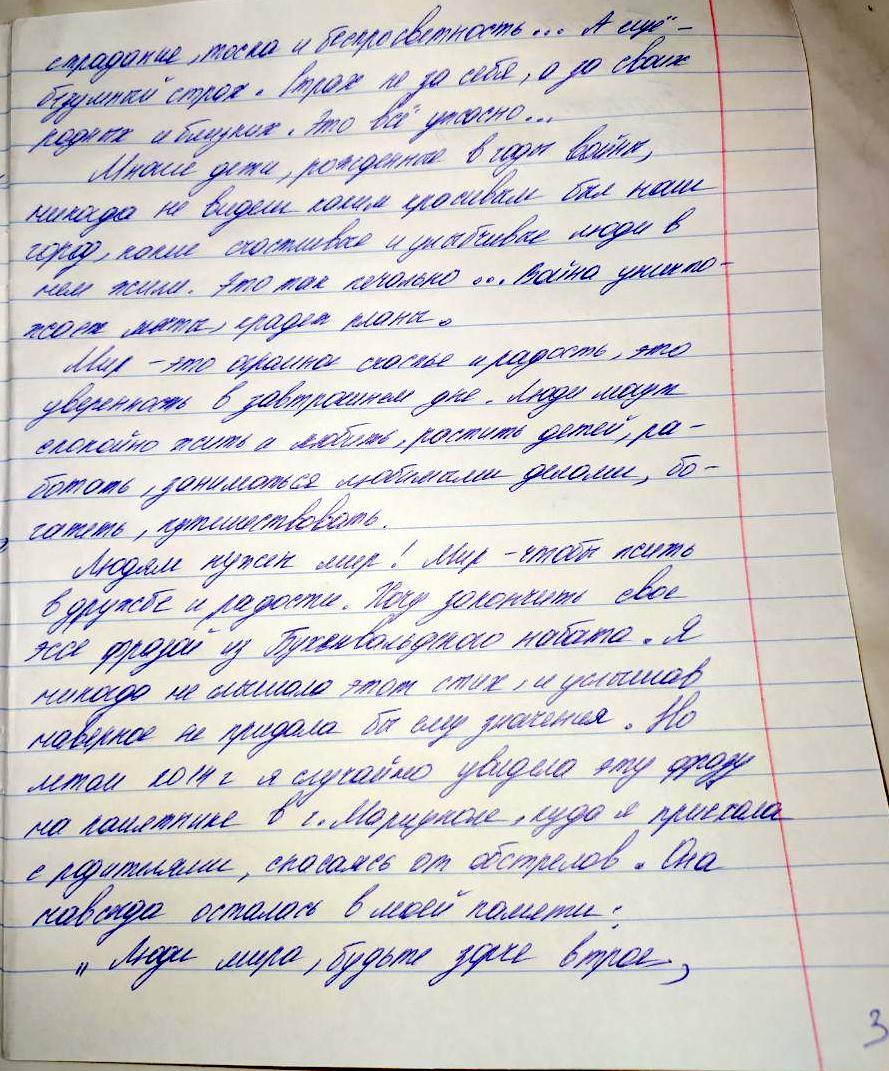 страдание, тоска и беспросветность... А ещё -
безумный страх. Страх не за себя, а за своих
родных и близких. Это всё ужасно...
Многие дети, рожденные в годы войны,
никогда не видели каким красивым был наш
город, какие счастливые и улыбчивые люди в
нем жили. Это так печально... Война уничто-
жает мечты, крадет планы.
Мир - это огромное счастье и радость, это
уверенность в завтрашнем дне. Люди могут
спокойно жить и любить, растить детей, ра-
ботать, заниматься любимыми делами, бо-
гатеть, путешествовать.
Людям нужен мир! Мир - чтобы жить
в дружбе и радости. Хочу закончить свое
эссе фразой из Бухенвальдского набата. Я
никогда не слышала этот стих, и услышав
наверное не придала бы ему значения. Но
летом 2014 г я случайно увидела эту фразу
на памятнике в г. Мариуполе, куда я приехала
с родителями, спасаясь от обстрелов. Она
навсегда осталась в моей памяти:
„ Люди мира, будьте зорче втрое,
3